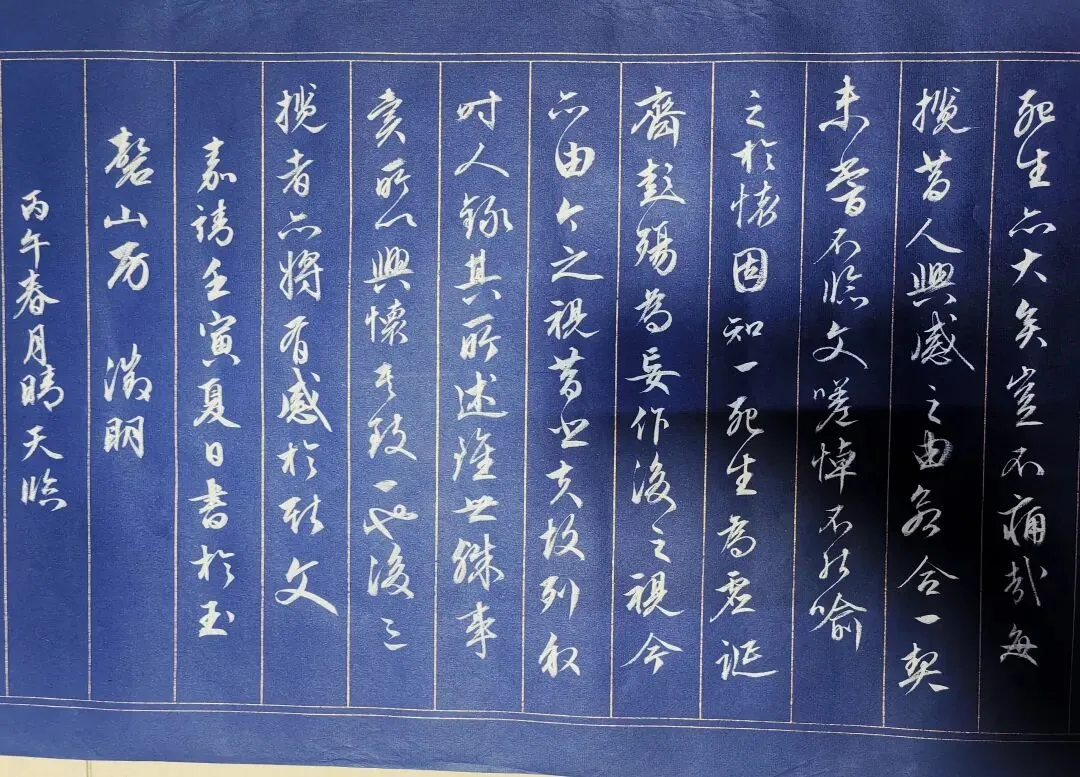 死生亦大矣豈不痛哉每
攬昔人興感之由若合一契
未嘗不臨文嗟悼不能喻
之於懷固知一死生為虛誕
齊彭殤為妄作後之視今
亦由今之視昔悲夫故列叙
時人錄其所述雖世殊事
異所以興懷其致一也後之
攬者亦將有感於斯文
嘉靖壬寅夏日書於玉
磬山房　徵明
丙午春月晴天臨